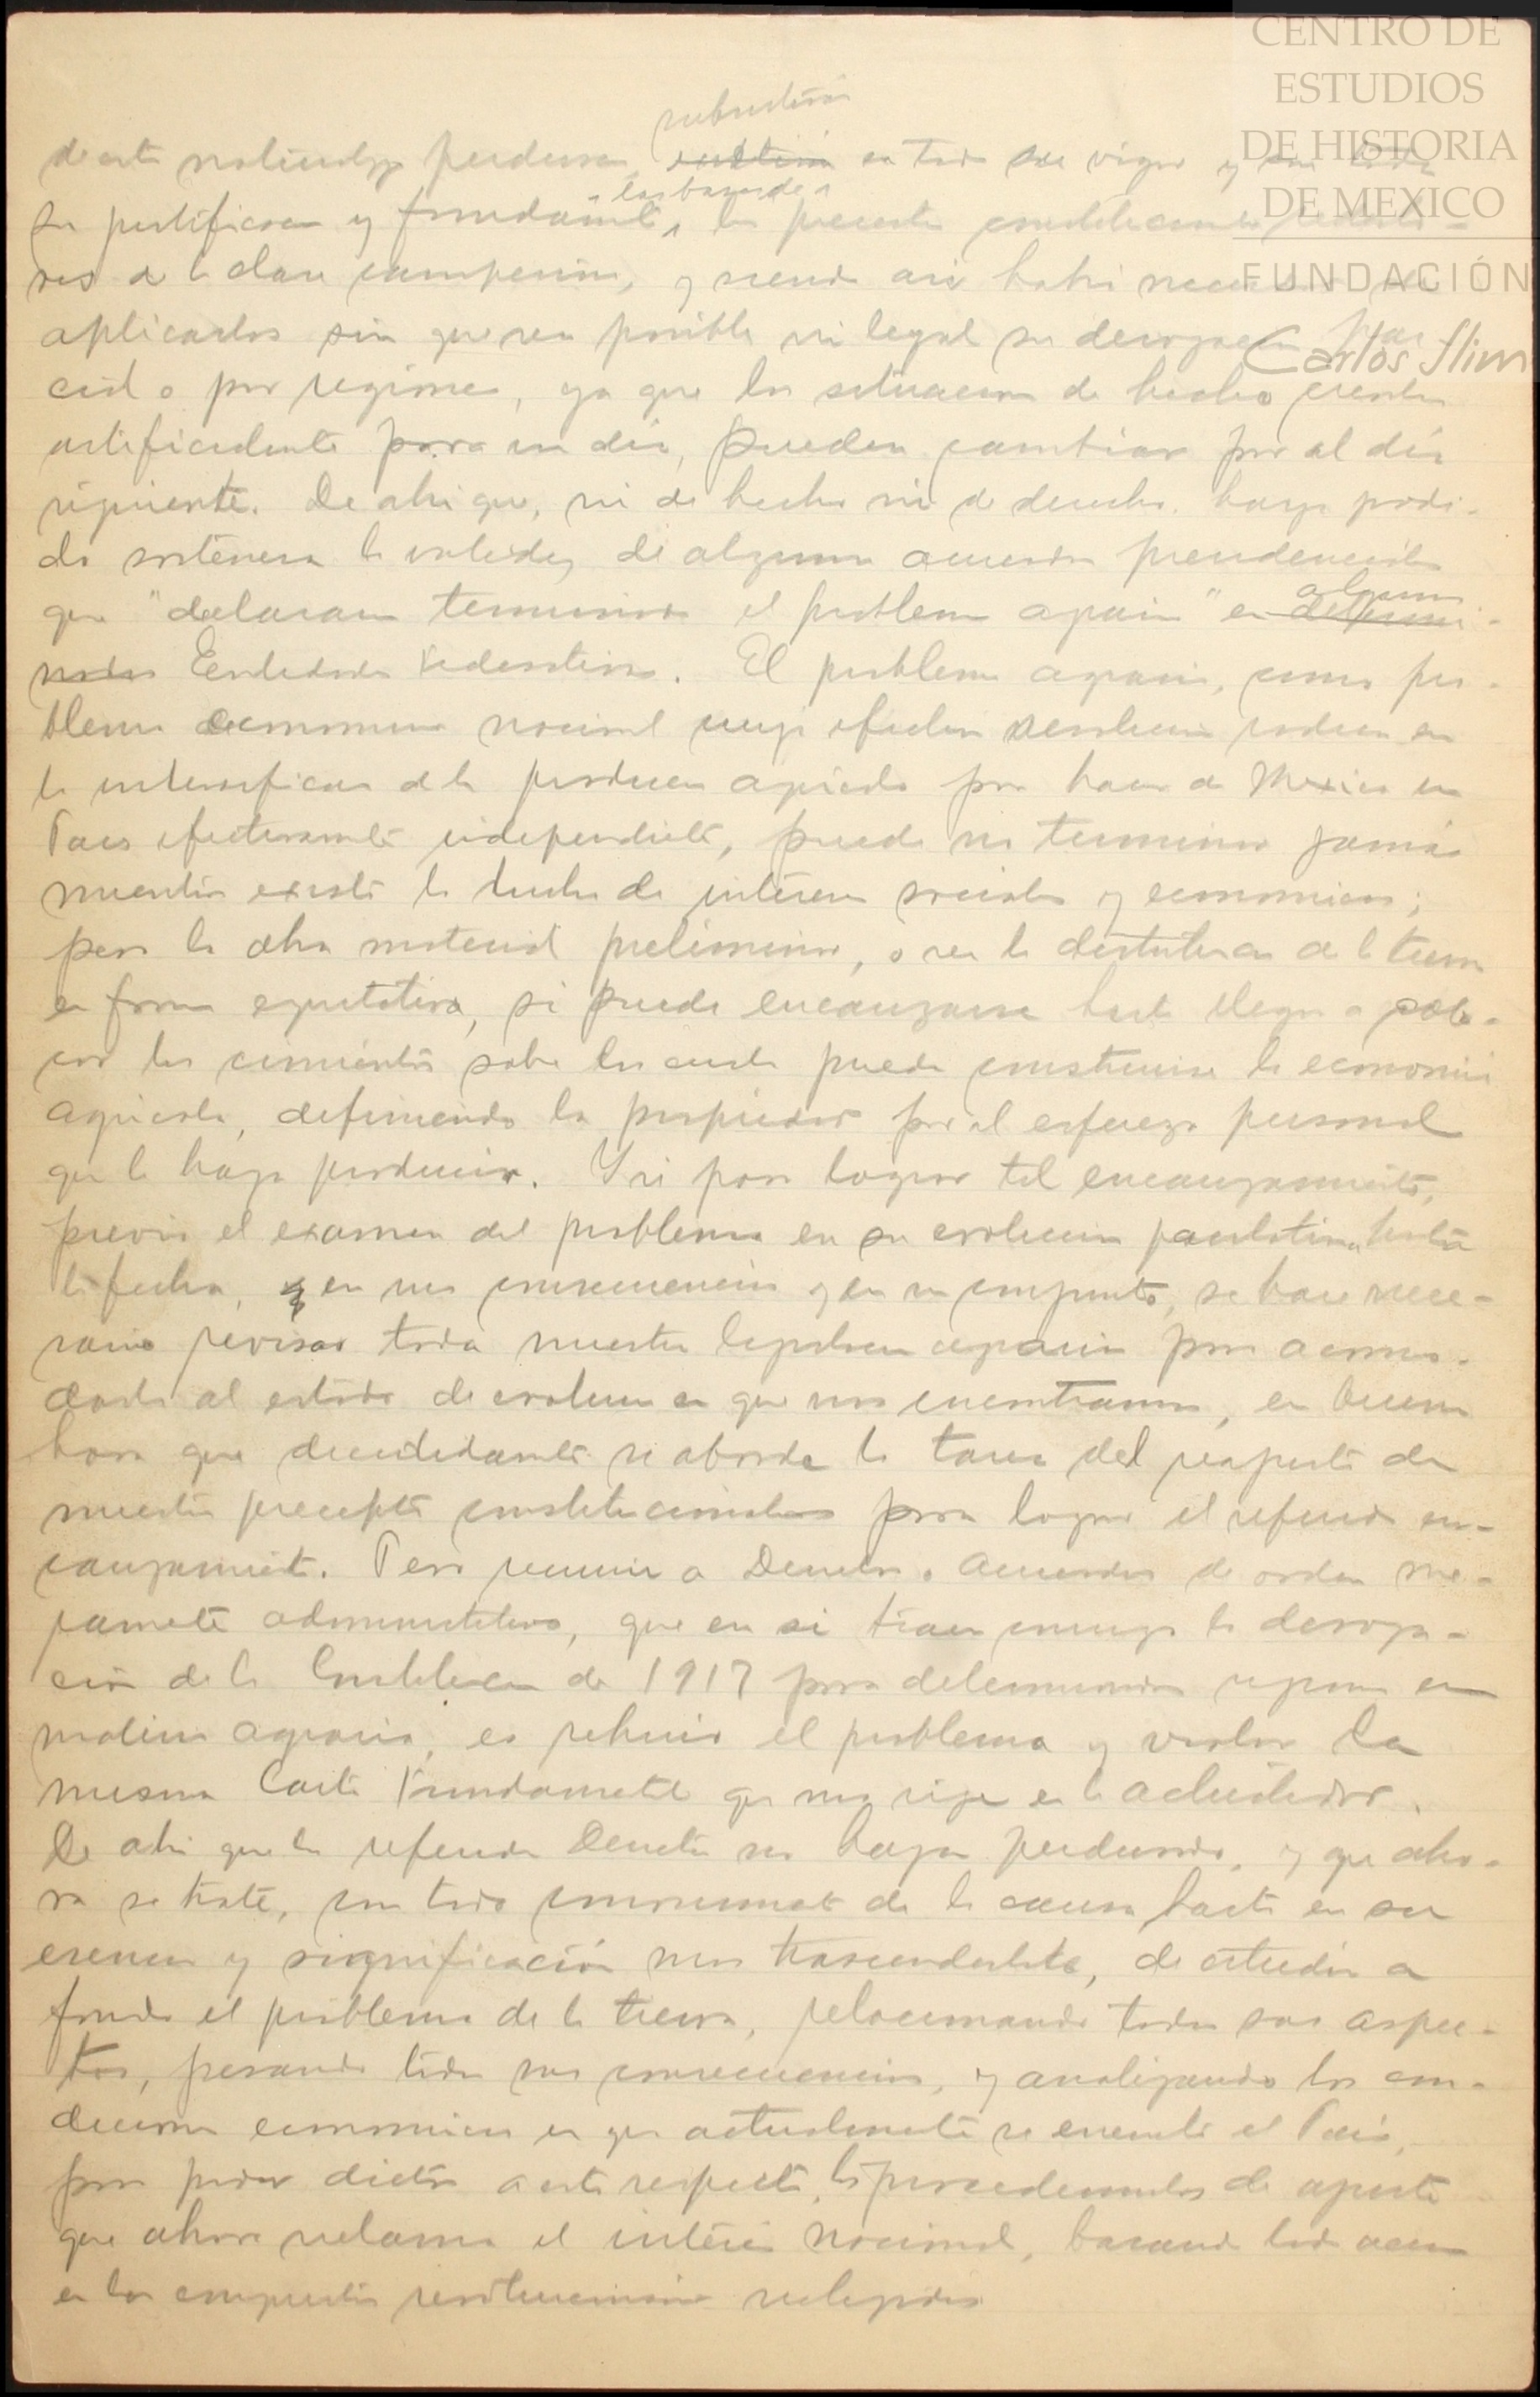 CENTRO DE
ESTUDIOS
DE HISTORIA
DE MEXICO
FUNDACIÓN
Carlos Slim
subsistirán
de esta naturaleza perduran, en todo su vigor y con toda
las bases de
su justificacion y fundamento, los preceptos constitucionales
res de la clase campesina, y siendo asi habrá
aplicarlos sin que sea posible ni legal su derogacion
o por regiones, ya que las situaciones de hecho creadas
artificialmente para un dia, pueden cambiar por al dia
siguiente. De ahi que, ni de hecho ni de derecho haya podi-
do sostenerse la validez de algunos acuerdos presidenciales
algunas
que "declararon terminado el problema agrario" en determi-
nadas Entidades Federativas. El problema agrario, como pro-
blema economico nacional cuya efectiva resolucion radica en
la intensificacion de la produccion agricola para hacer de Mexico un
Pais efectivamente independiente, puede no terminar jamás
mientras exista la lucha de intereses sociales y economicos;
pero la obra material preliminar, o sea la distribucion de la tierra
en forma equitativa, si puede encauzarse hasta llegar a colo-
car los cimientos sobre los cuales pueda construirse la economia
agricola, definiendo la propiedad por el esfuerzo personal
que la haga producir. Y si para lograr tal encauzamiento,
previo el examen del problema en su evolucion paulatina hasta
la fecha, en sus consecuencias y en su conjunto, se hace nece-
sario revisar toda nuestra legislacion agraria para acomo-
darla al estado de evolucion en que nos encontramos, en buena
hora que decididamente se aborde la tarea del reajuste de
nuestros preceptos constitucionales para lograr el referido en-
cauzamiento. Pero recurrir a Decretos o Acuerdos de orden me-
ramente administrativo, que en si traen consigo la deroga-
ción de la Constitucion de 1917 para determinadas regiones en
materia agraria, es rehuir el problema y violar la
misma Carta Fundamental que nos rige en la actualidad.
De ahi que los referidos Decretos no hayan perdurado, y que aho-
ra se trate, con todo conocimiento de la causa hasta en su
esencia y significación mas trascendental, de estudiar a
fondo el problema de la tierra, relacionando todos sus aspec-
tos, pesando todas sus consecuencias, y analizando las con-
diciones economicas en que actualmente se encuentra el Pais,
para poder dictar a este respecto, los procedimientos de ajuste
que ahora reclama el interés nacional, basando toda accion
en los conquistas revolucionarias